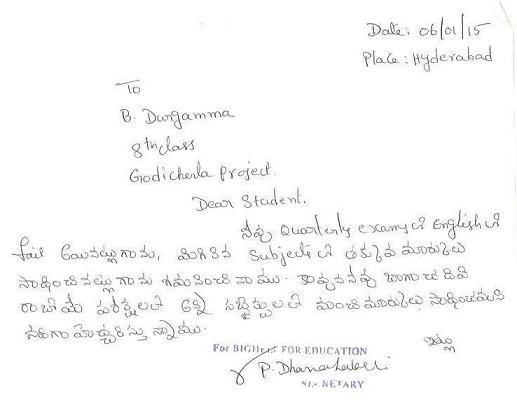 Date: 06/01/15
Place: Hyderabad
To
B. Durgamma
8th class
Godicherla Project.
Dear Student.
నీవు Quarterly examsలో Englishలో
fail అయినట్లుగాను, మిగిలిన Subjectsలో తక్కువ మార్కులు
సాధించినట్లుగాను గమనించినాము. కావున నీవు బాగా చదివి
రాబోయే పరీక్షలలో అన్ని సబ్జెక్టులలో మంచి మార్కులు సాధించమని
హెచ్చరిస్తున్నాము.
ఇట్లు
For BIGHelp FOR EDUCATION
P. Dhanalakshmi
SECRETARY